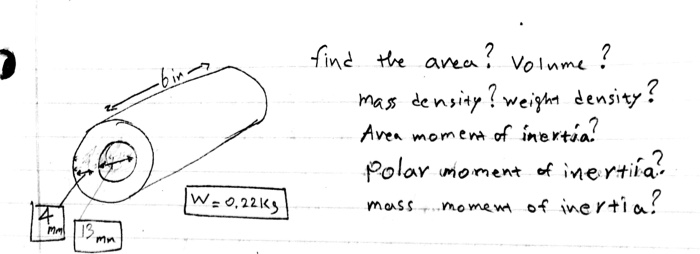 find the area? Volume?
6in
mass density? weight density?
Area moment of inertia?
Polar moment of inertira?
W = 0.22Kg
mass moment of inertia?
4 mm
13 mm